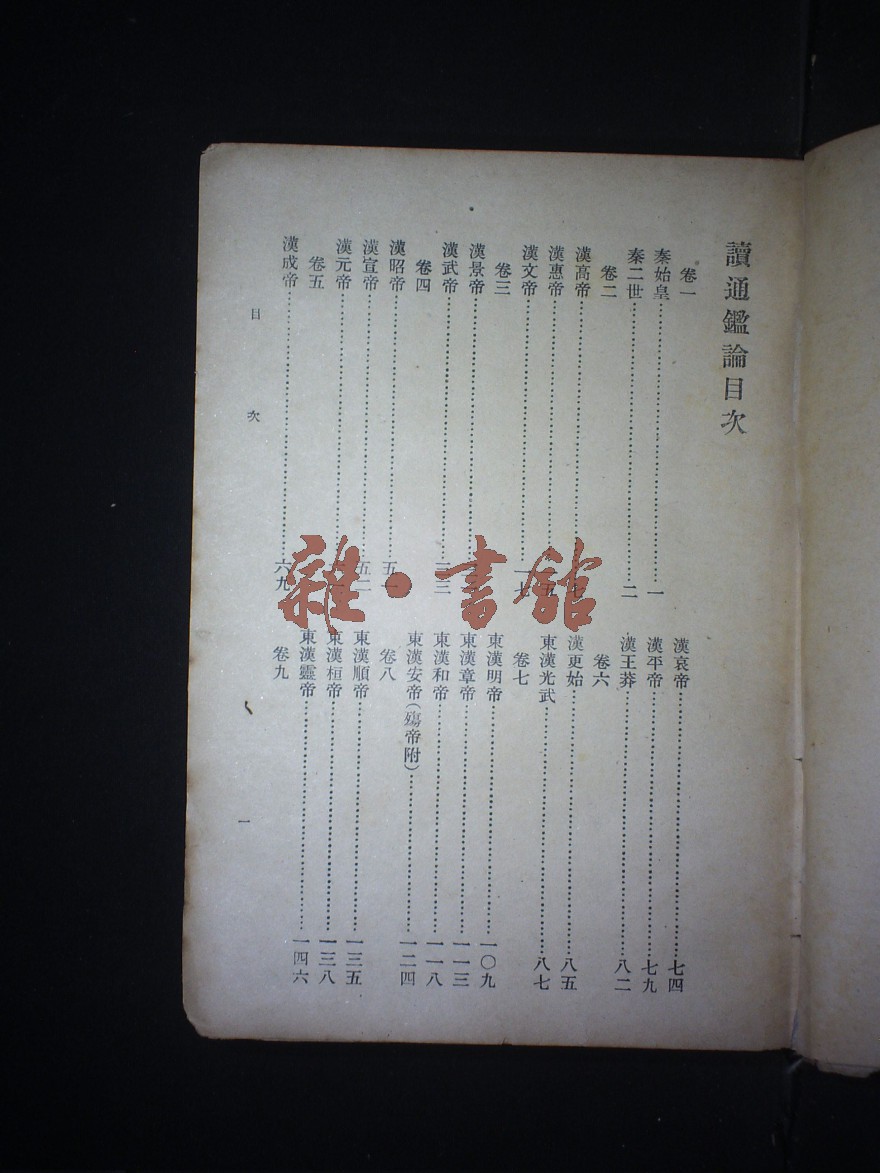 讀通鑑論目次
卷一
秦始皇……一
秦二世……二
卷二
漢高帝……七
漢惠帝……
漢文帝……一七
卷三
漢景帝……
漢武帝……三三
卷四
漢昭帝……五一
漢宣帝……五二
漢元帝……
卷五
漢成帝……六九
漢哀帝……七四
漢平帝……七九
漢王莽……八二
卷六
漢更始……八五
東漢光武……八七
卷七
東漢明帝……一〇九
東漢章帝……一一三
東漢和帝……一一八
東漢安帝（殤帝附）……一二四
卷八
東漢順帝……一三五
東漢桓帝……一三八
東漢靈帝……一四六
卷九
目次
一
雜·書館